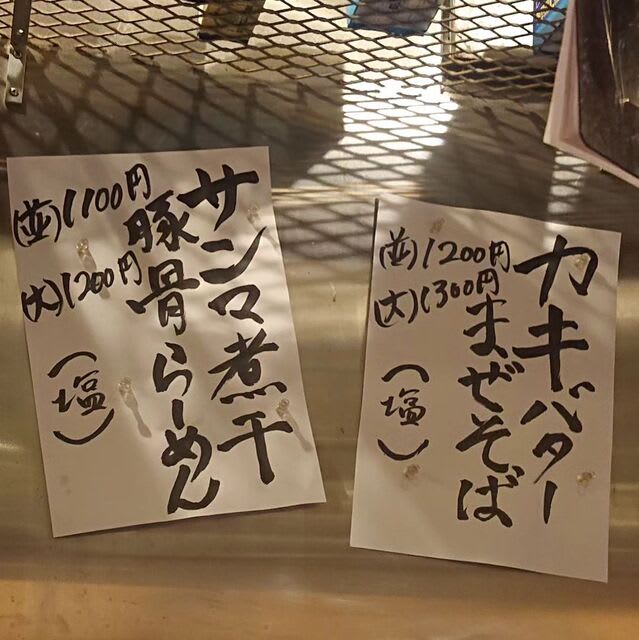 サンマ煮干
豚骨らーめん
(並)1100円
(大)1200円
(塩)
カキバター
まぜそば
(並)1200円
(大)1300円
(塩)